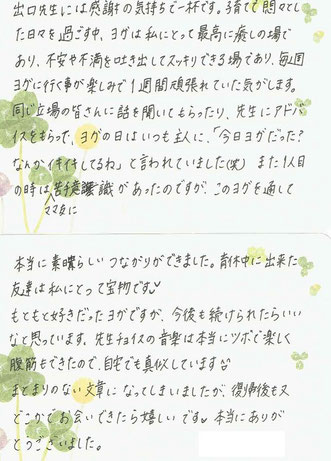 出口先生には感謝の気持ちで一杯です。子育てで悶々とし
た日々を過ごす中、ヨガは私にとって最高に癒しの場で
あり、不安や不満を吐き出してスッキリできる場であり、毎週
ヨガに行く事が楽しみで1週間頑張れていた気がします。
同じ立場の皆さんに話を聞いてもらったり、先生にアドバ
イスをもらって、ヨガの日はいつも主人に、「今日ヨガだった?
なんかイキイキしてるね」と言われていました(笑) また1人目
の時は苦手意識があったのですが、このヨガを通して
ママ友に
本当に素晴らしいつながりができました。育休中に出来た
友達は私にとって宝物です♡
もともと好きだったヨガですが、今後も続けられたらいい
なと思っています。先生チョイスの音楽は本当にツボで楽しく
腹筋もできたので、自宅でも真似しています
まとまりのない文章になってしまいましたが、復帰後も又
どこかでお会いできたら嬉しいです♡本当にありが
とうございました。